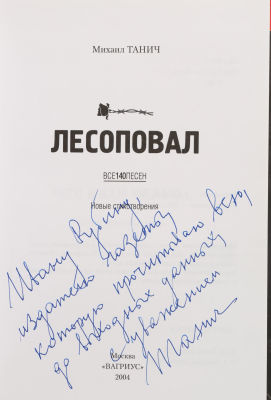 Михаил ТАНИЧ
ЛЕСОПОВАЛ
ВСЕ140ПЕСЕН
Новые стихотворения
Ивану Рубину
издателю газеты,
которую прочитываю всю,
до выходных данных,
с уважением
Танич
Москва
«ВАГРИУС»
2004